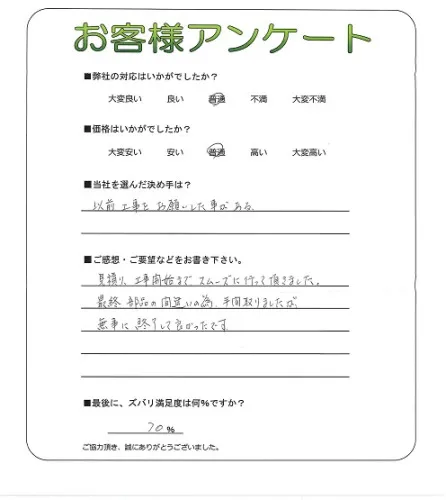 お客様アンケート
■弊社の対応はいかがでしたか？
大変良い 良い 普通 不満 大変不満
■価格はいかがでしたか？
大変安い 安い 普通 高い 大変高い
■当社を選んだ決め手は？
以前工事をお願いした事がある。
■ご感想・ご要望などをお書き下さい。
見積り、工事開始までスムーズに行って頂きました。
最終部品の間違いの為、手間取りましたが、
無事に終了して良かったです
■最後に、ズバリ満足度は何％ですか？
70％
ご協力頂き、誠にありがとうございました。